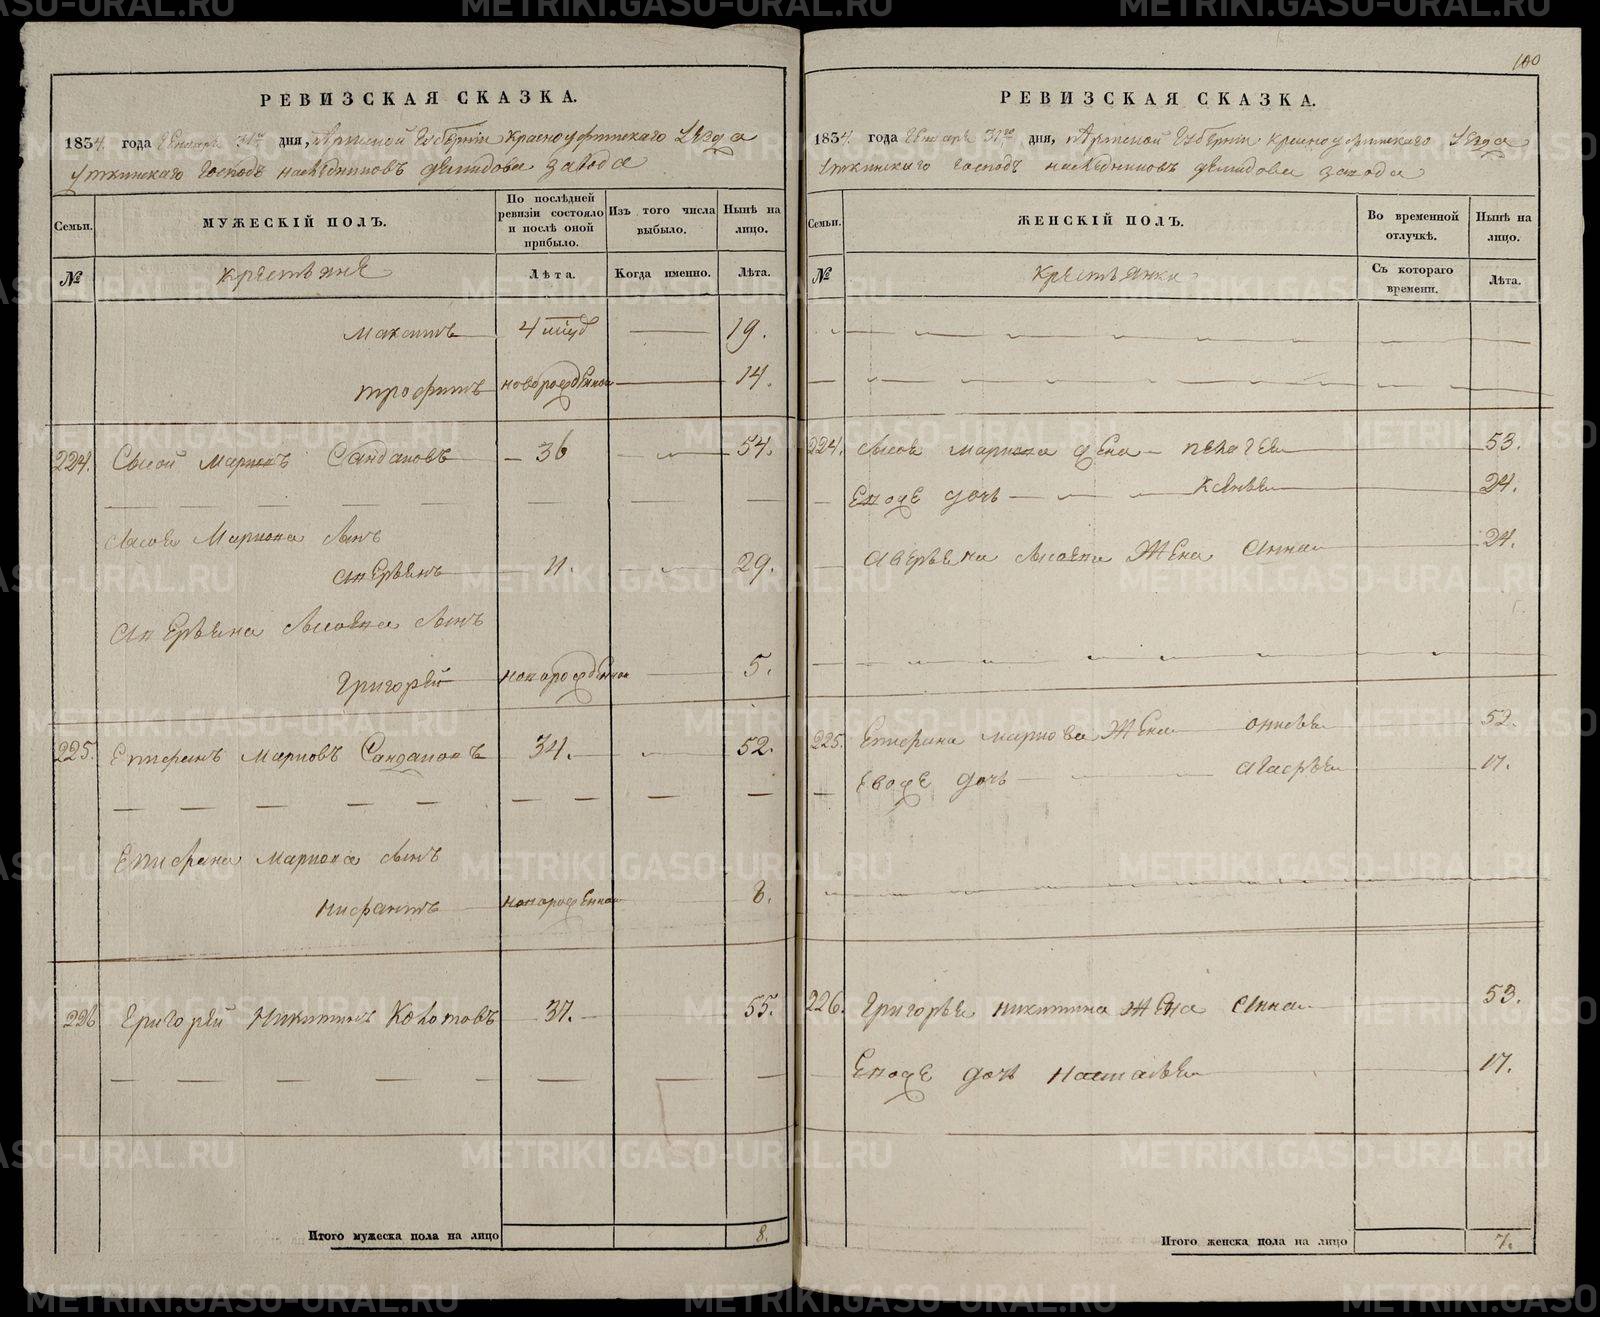 РЕВИЗСКАЯ СКАЗКА.
1834. года Генваря 31го дня, Пермской Губернiи Красноуфимскаго Уезда
Уткинскаго Господъ наследниковъ демидова завода
Семьи.
МУЖЕСКIЙ ПОЛЪ.
По послѣдней ревизiи состояло и послѣ оной прибыло.
Изъ того числа выбыло.
Нынѣ на лицо.
№
крестьяне
Лѣта.
Когда именно.
Лѣта.
максимъ 4 19.
трофимъ новорожденной 14.
224. Сысой Марковъ 36 54.
Сысоя Маркова сынъ
аверьянъ 11. 29.
аверьяна Сысоева сынъ
григорей новорожденной 5.
225. Епифанъ Марковъ 34. 52.
Епифана Маркова сынъ
нифантъ новорожденной 8.
226 григорей Никитинъ Колотовъ 37. 55.
Итого мужеска пола на лицо 8.
100
РЕВИЗСКАЯ СКАЗКА.
1834. года Генваря 31го дня, Пермской Губернiи Красноуфимскаго Уезда
Уткинскаго Господъ наследниковъ демидова завода
Семьи.
ЖЕНСКIЙ ПОЛЪ.
Во временной отлучкѣ.
Нынѣ на лицо.
№
крестьянки
Съ котораго времени.
Лѣта.
224. Сысоя Маркова жена пелагея 53.
Евоже дочь ксенья 24.
аверьяна Сысоева жена анна 24.
225. Епифана маркова жена 52.
Евоже дочь 17.
226. григорья никитина жена анна 53.
Евоже дочь наталья 17.
Итого женска пола на лицо 7.
METRIKI.GASO-URAL.RU